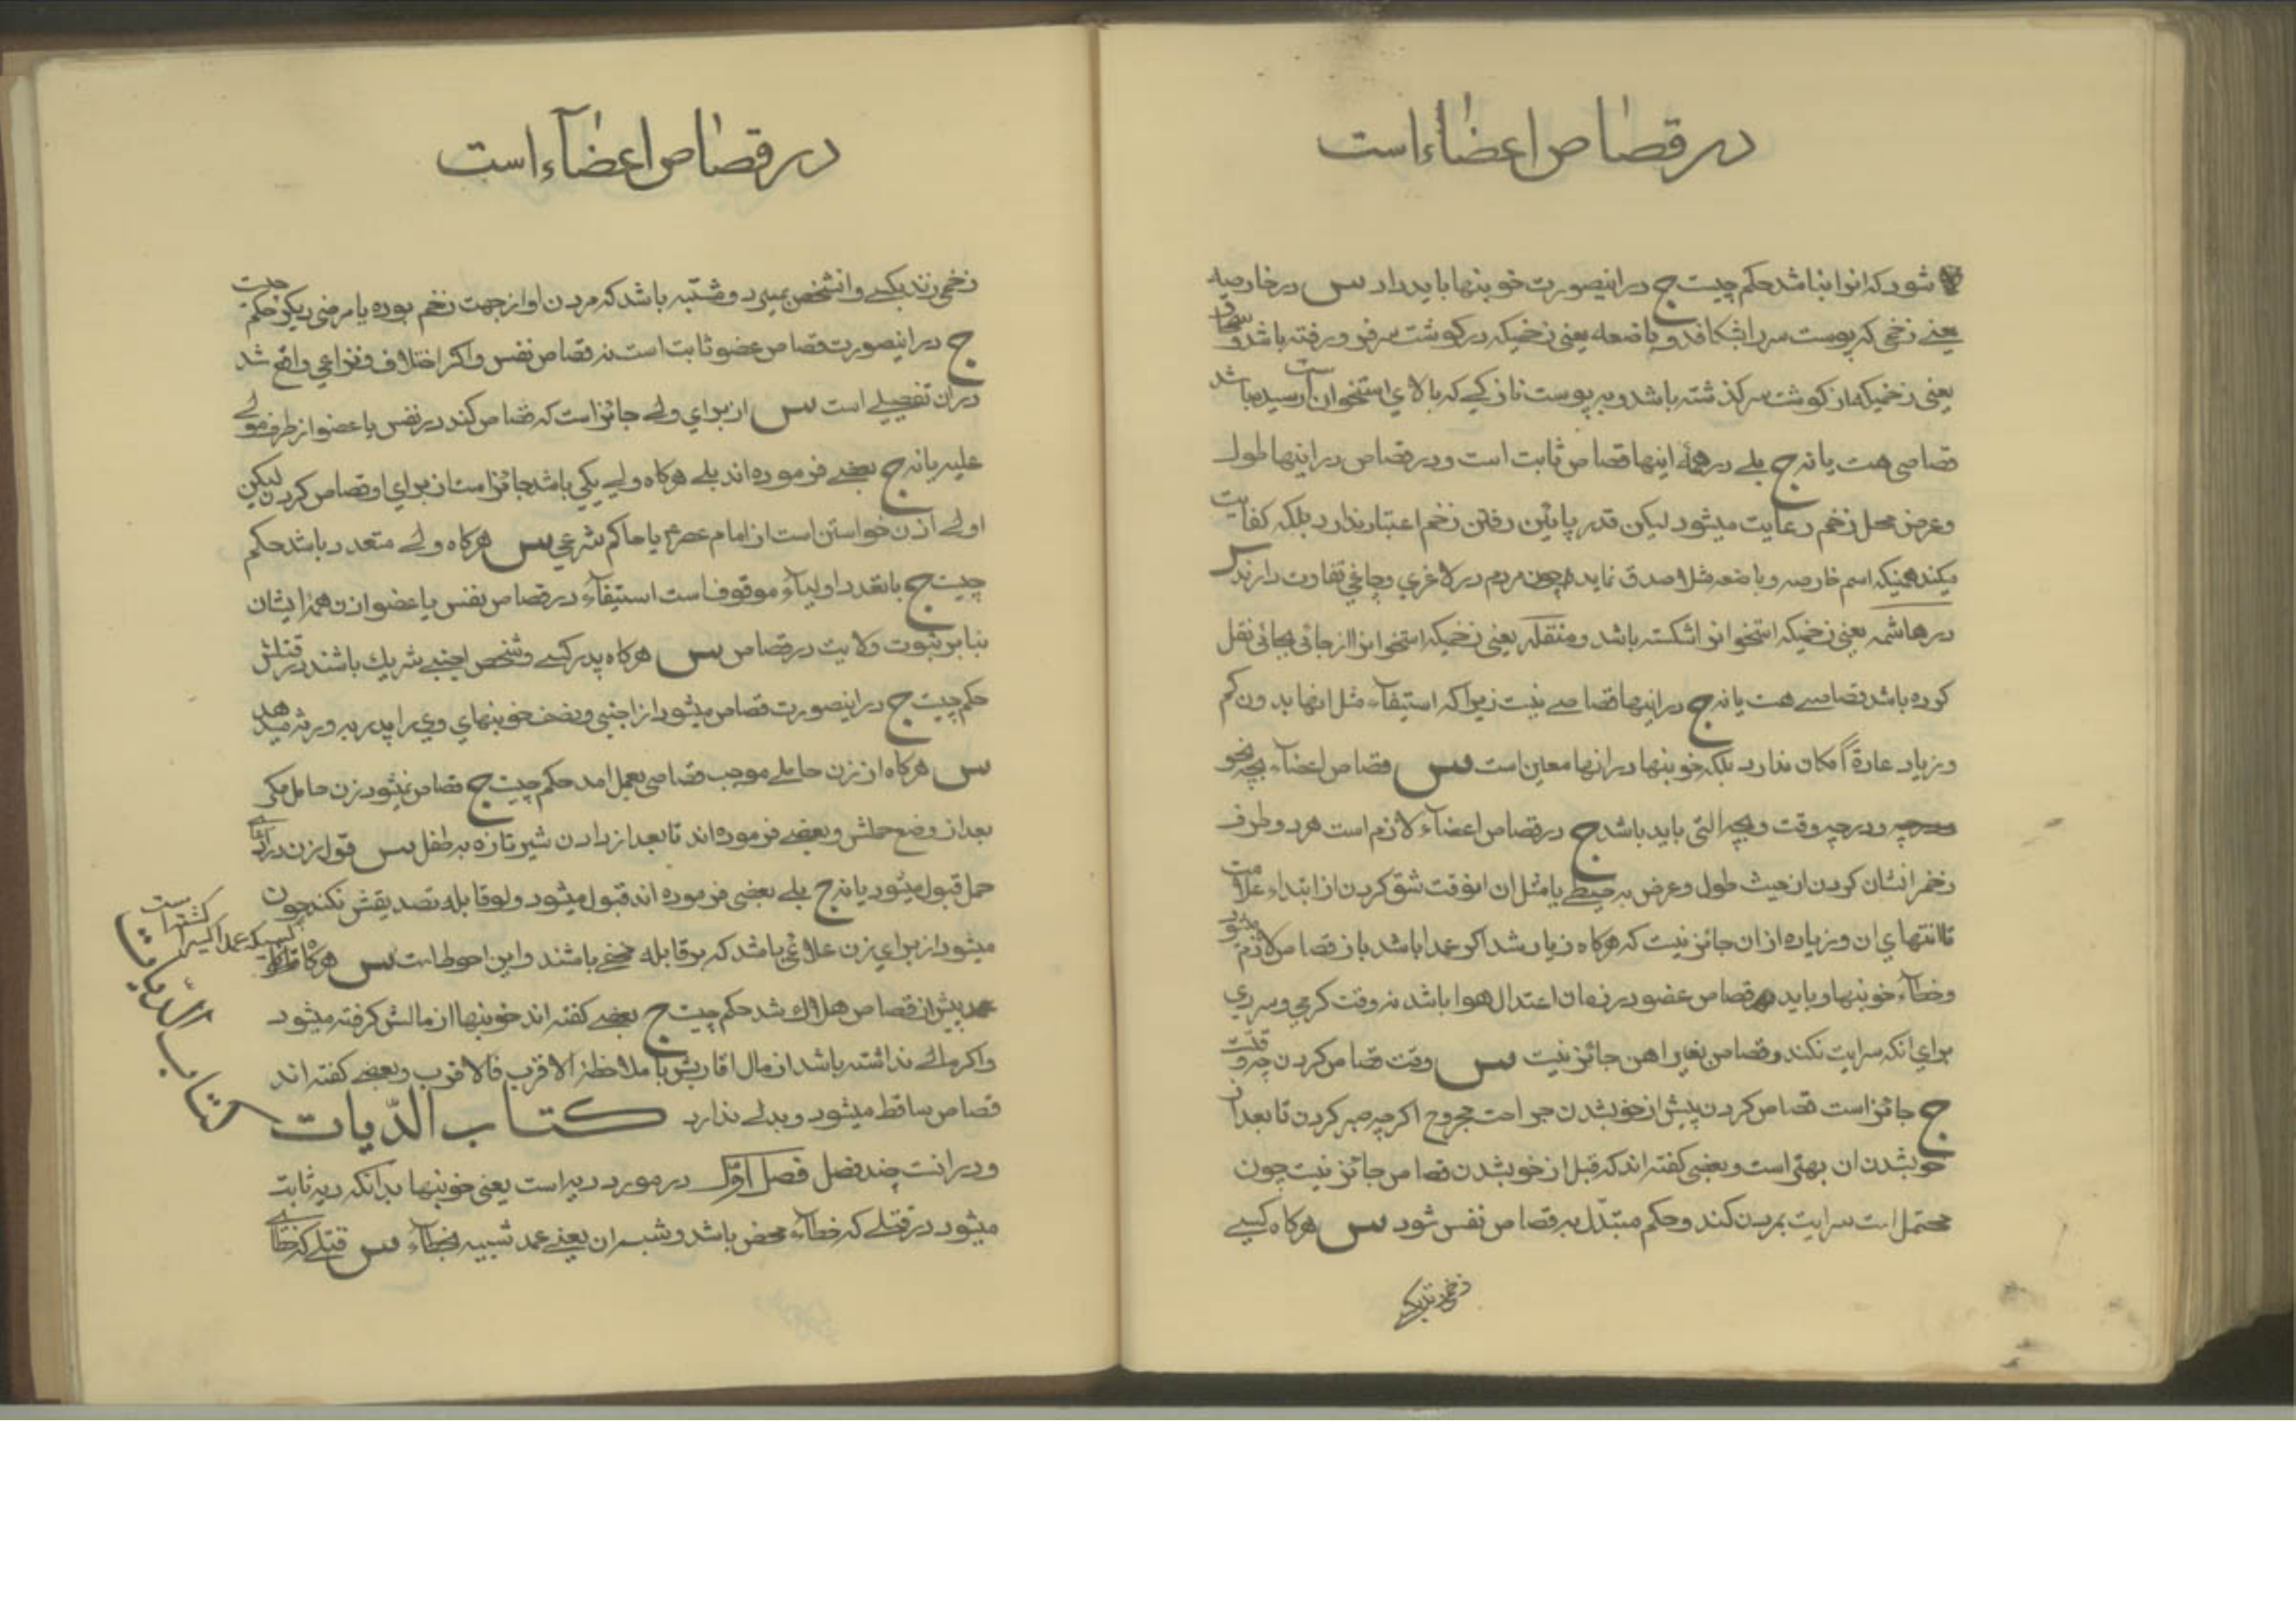 در قصاص اعضاء است
شود که انرا نباشد حکم چیست ج در اینصورت خونبها باید داد س در خارصه
یعنی زخمی که پوست سر را بشکافد و باضعه یعنی زخمیکه در کوشت سر فرو رفته باشد و سمحاق
یعنی زخمیکه از کوشت سر کذشته باشد و به پوست نازکی که بالای استخوان است رسیده باشد
قصاص هست یا نه ج بلی در همهٔ اینها قصاص ثابت است و در قصاص در اینها طول
و عرض محل زخم رعایت میشود لیکن قدر پائین رفتن زخم اعتبار ندارد بلکه کفایت
میکند همینکه اسم خارصه و باضعه مثلا صدق نماید چون مردم در لاغری و چاغی تفاوت دارند س
در هاشمه یعنی زخمیکه استخوانرا شکسته باشد و منقله یعنی زخمیکه استخوانرا از جائی بجائی نقل
کرده باشد قصاصی هست یا نه ج در اینها قصاصی نیست زیرا که استیفآء مثل انها بدون کم
و زیاد عادة امکان ندارد بلکه خونبها در انها معین است س قصاص اعضآء بچه نحو
و در چه وقت و بچه التی باید باشد ج در قصاص اعضآء لازم است هر دو طرف
زخم را نشان کردن از حیث طول و عرض به خیطی یا مثل ان انوقت شق کردن از ابتداء علامت
تا انتهای ان و زیاده از ان جائز نیست که هرکاه زیاد شد اکر عمدا باشد باز قصاص لازم میشود
و خطآء خونبها و باید قصاص عضو در زمان اعتدال هوا باشد نه وقت کرمی و سردی
برای انکه سرایت نکند و قصاص بغیر اهن جائز نیست س وقت قصاص کردن چه وقت
ج جائز است قصاص کردن پیش از خوبشدن جراحت مجروح اکرچه صبر کردن تا بعد از
خوبشدن ان بهتر است و بعضی کفته اند که قبل از خوبشدن قصاص جائز نیست چون
محتمل است سرایت بمردن کند و حکم مبتدّل به قصاص نفس شود س هرکاه کسی
زخمی زند بکسی
در قصاص اعضآء است
زخمی زند بکسی و انشخص بمیرد و مشتبه باشد که مردن او از جهت زخم بوده یا مرضی دیکر حکم چیست
ج در اینصورت قصاص عضو ثابت است نه قصاص نفس و اکر اختلاف و نزاعی واقع شد
در ان تفصیلی است س از برای ولی جائز است که قصاص کند در نفس یا عضو از طرف مولی
علیه یا نه ج بعضی فرموده اند بلی هرکاه ولی یکی باشد جائز است از برای او قصاص کردن لیکن
اولی اذن خواستن است از امام عصر یا حاکم شرعی س هرکاه ولی متعدد باشد حکم
چیست ج با تعدد اولیآء موقوف است استیفآء در قصاص نفس یا عضو اذن همهٔ ایشان
بنا بر ثبوت ولایت در قصاص س هرکاه پدر کسی و شخص اجنبی شریك باشند در قتلش
حکم چیست ج در اینصورت قصاص میشود از اجنبی و نصف خونبهای وی را پدر به ورثه میدهد
س هرکاه از زن حاملی موجب قصاصی بعمل امد حکم چیست ج قصاص نمیشود زن حامل مکر
بعد از وضع حملش و بعضی فرموده اند تا بعد از دادن شیر تازه به طفل س قول زن در ادّعای
حمل قبول میشود یا نه ج بلی بعضی فرموده اند قبول میشود ولو قابله تصدیقش نکند چون
میشود از برای زن علاماتی باشد که بر قابله مخفی باشند و این احوط است س هرکاه
کسیکه عمدا کسیرا کشته است
پیش از قصاص هلاك شد حکم چیست ج بعضی کفته اند خونبها از مالش کرفته میشود
و اکر مالی نداشته باشد از مال اقاربش با ملاحظهٔ الاقرب فالاقرب و بعضی کفته اند
قصاص ساقط میشود و بدلی ندارد کتاب الدّیات
کتاب الدّیات
و در انست چند فصل فصل اوّل در مورد دیه است یعنی خونبها بدانکه دیه ثابت
میشود در قتلی که خطآء محض باشد و شبه ان یعنی عمد شبیه بخطآء س قتلی که خطای